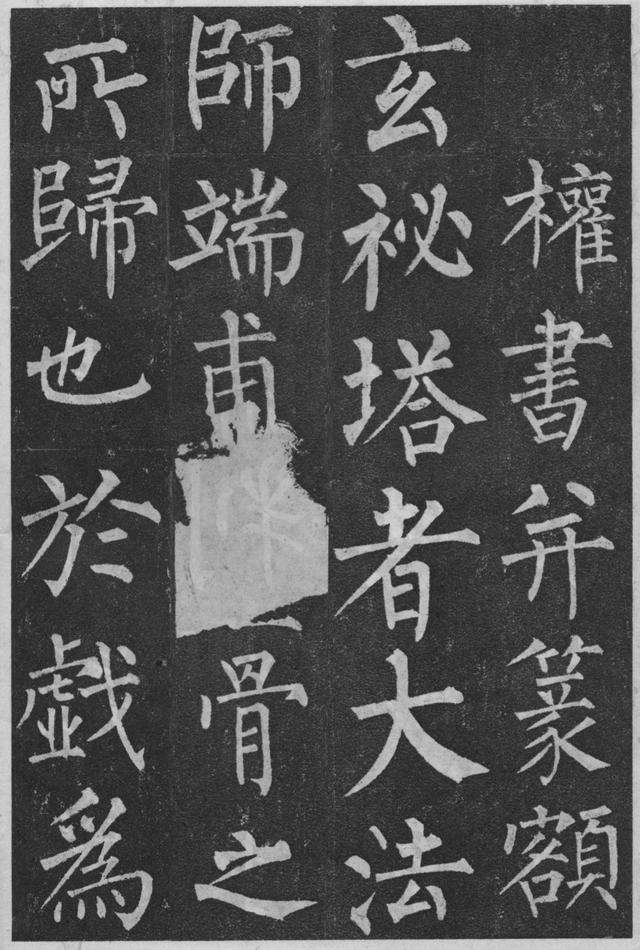 權書并篆額
玄祕塔者大法
師端甫骨之
所歸也於戲為